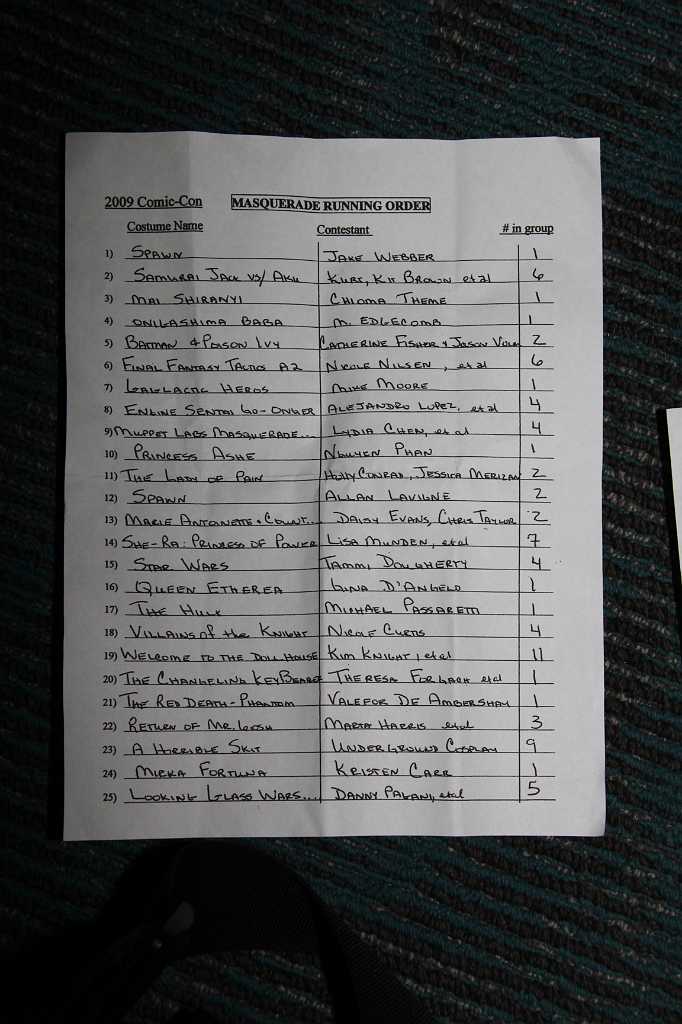 2009 Comic-Con MASQUERADE RUNNING ORDER
Costume Name Contestant # in group
1) SPAWN JAKE WEBBER 1
2) SAMURAI JACK VS/ AKU KURT, KIT BROWN et al 6
3) MAI SHIRANYI CHIOMA THEME 1
4) ONIGASHIMA BABA M. EDGECOMB 1
5) BATMAN & POISON IVY CATHERINE FISHER & JASON 2
6) FINAL FANTASY TACTICS A2 NICOLE NILSEN, et al 6
7) GALLACTIC HEROS MIKE MOORE 1
8) ENGINE SENTAI GO-ONGER ALEJANDRO LOPEZ, et al 4
9) MUPPET LABS MASQUERADE... LYDIA CHEN, et al 4
10) PRINCESS ASHE NGUYEN PHAN 1
11) THE LADY OF PAIN HOLLY CONRAD, JESSICA MERIZAN 2
12) SPAWN ALLAN LAVIGNE 2
13) MARIE ANTOINETTE & COUNT... DAISY EVANS, CHRIS TAYLOR 2
14) SHE-RA: PRINCESS OF POWER LISA MUNDEN, et al 7
15) STAR WARS TAMMI DOUGHERTY 4
16) QUEEN ETHEREA GINA D'ANGELO 1
17) THE HULK MICHAEL PASSARETTI 1
18) VILLAINS of the KNIGHT NICOLE CURTIS 4
19) WELCOME TO THE DOLL HOUSE KIM KNIGHT, et al 11
20) THE CHANGELING KEYBEARER THERESA FORGACH et al 1
21) THE RED DEATH-PHANTOM VALEFOR DE AMBERSHAY 1
22) RETURN OF MR. GOSH MARIA HARRIS et al 3
23) A HORRIBLE SKIT UNDERGROUND COSPLAY 9
24) MICKA FORTUNA KRISTEN CARR 1
25) LOOKING GLASS WARS.... DANNY PAGANI, et al 5